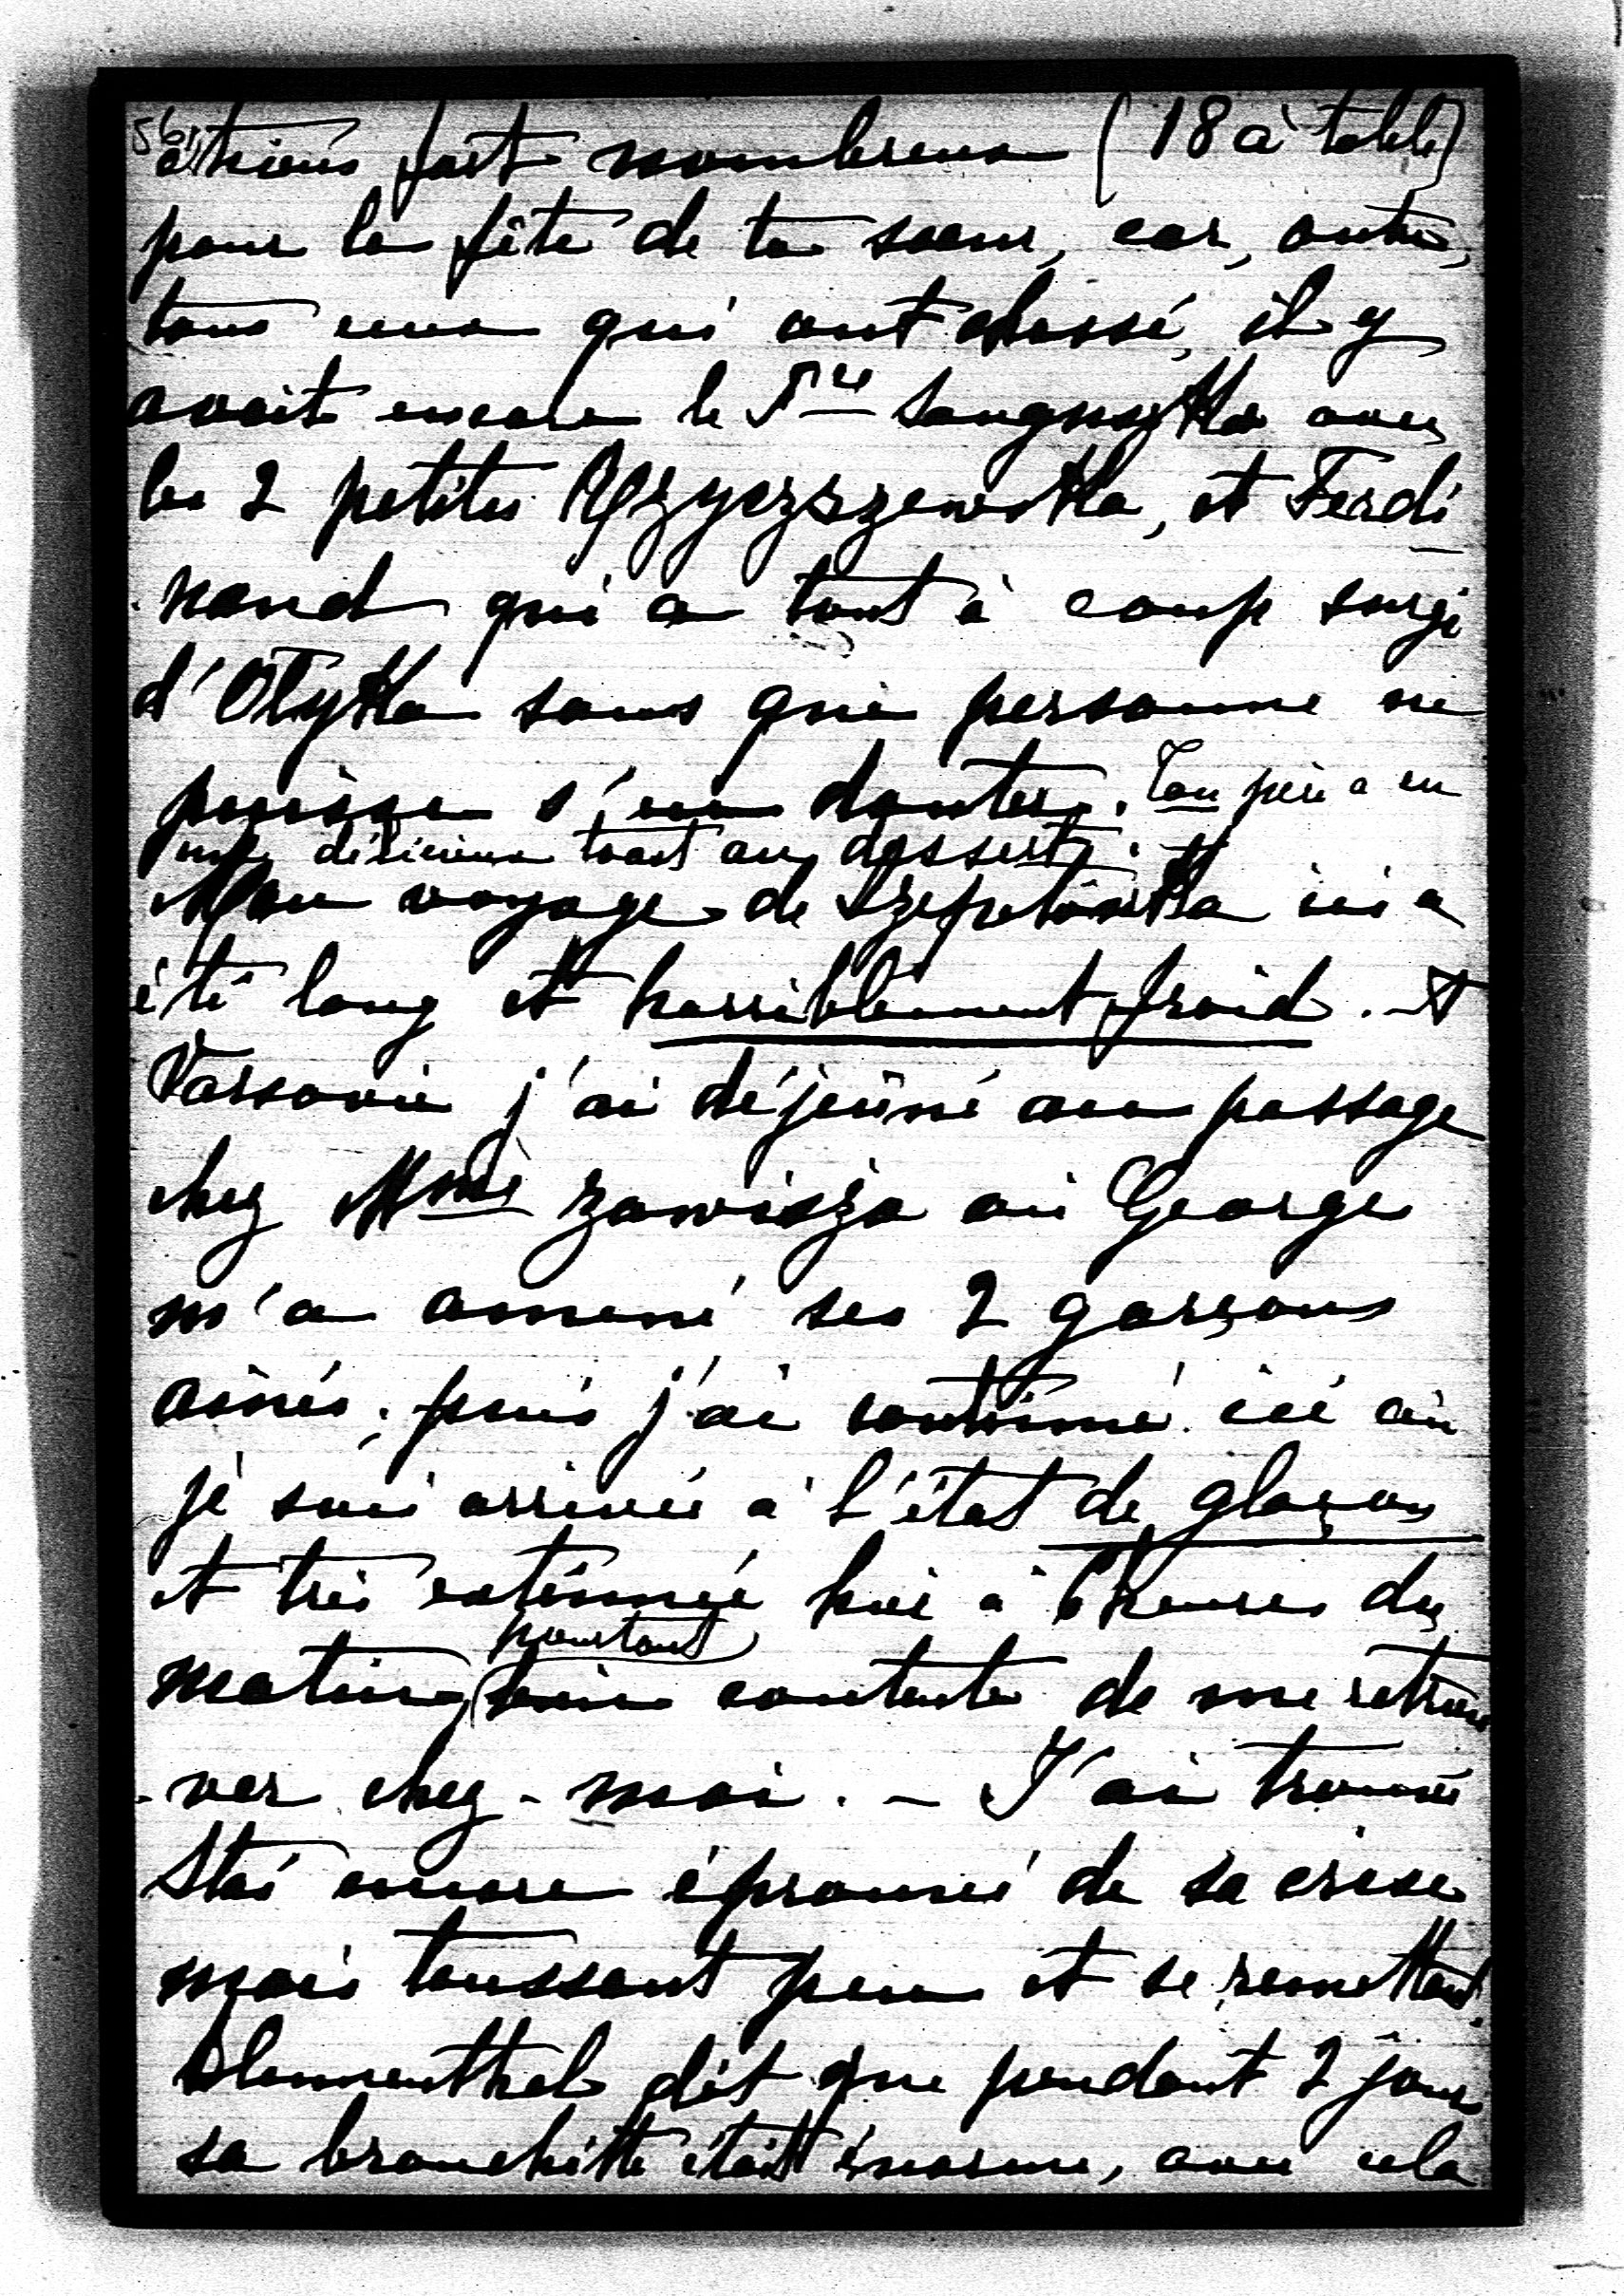 56.
étions fort nombreux (18 à table)
pour la fête de ta soeur, car, outre
tous ceux qui ont chassé, il y
avait encore la Psse Sanguszko avec
les 2 petites et Ferdi
-nand qui a tout à coup surgi
d'Olyka sans que personne ne
puisse s'en douter. Ton père a eu
un délicieux toast au dessert.
Mon voyage de Szepetówka ici a
été long et horriblement froid. – A
Varsovie j'ai déjeûné au passage
chez Mme Zawisza où George
m'a amené ses 2 garçons
aînés; puis j'ai continué ici où
je suis arrivée à l'état de glaçon
et très exténuée hier à 6 heures du
matin, (pourtant) bien contente de me retrou
-ver chez-moi. – J'ai trouvé
Stas encore éprouvé de sa crise
mais toussant peu et se remettant.
Blumenthal dit que pendant 2 jours
sa bronchitte était énorme, avec cela